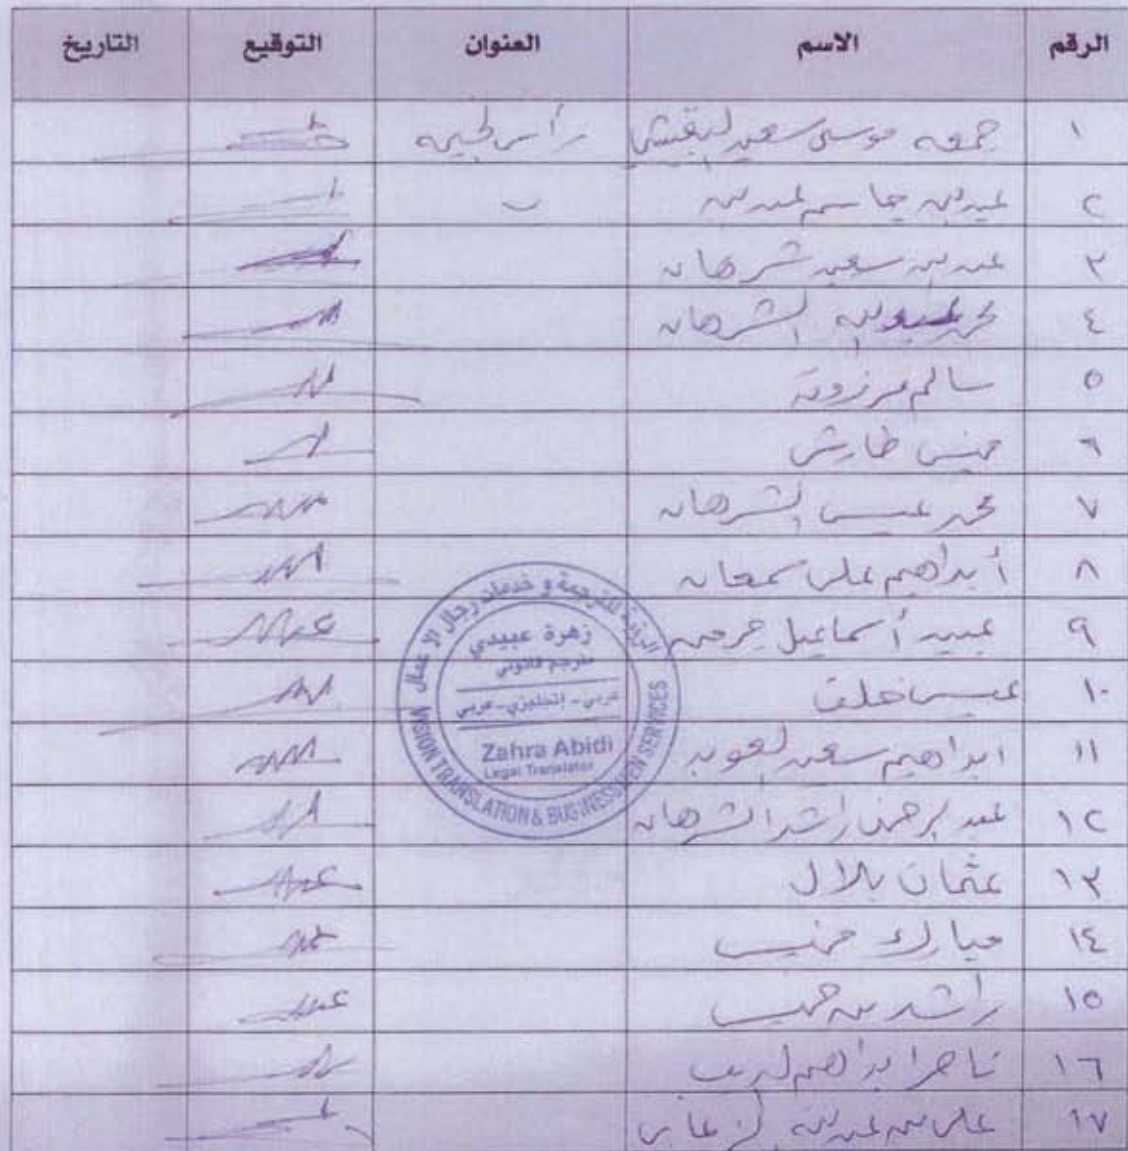 الرقم الاسم العنوان التوقيع التاريخ
١ جمعه موسى سعيد البقيشي رأس الخيمه
٢ عبدالله جاسم عبدالله
٣ عبدالله سعيد شرهان
٤ محمد عبدالله الشرهان
٥ سالم مرزوق
٦ خميس طارش
٧ محمد عيسى الشرهان
٨ أبراهيم على سمحان
٩ عبيد أسماعيل حرمي
١٠ عيسى خلف
١١ ابراهيم سعيد
١٢ عبدالرحمن راشد الشرهان
١٣ عثمان بلال
١٤ مبارك خميس
١٥ راشد بن خميس
١٦ ناصر ابراهيم
١٧ على عبدالله الزعابى
للترجمة و خدمات رجال الاعمال
زهرة عبيدي
مترجم قانوني
عربي - إنجليزي - عربي
Zahra Abidi
Legal Translator
VISION TRANSLATION & BUSINESSMEN SERVICES